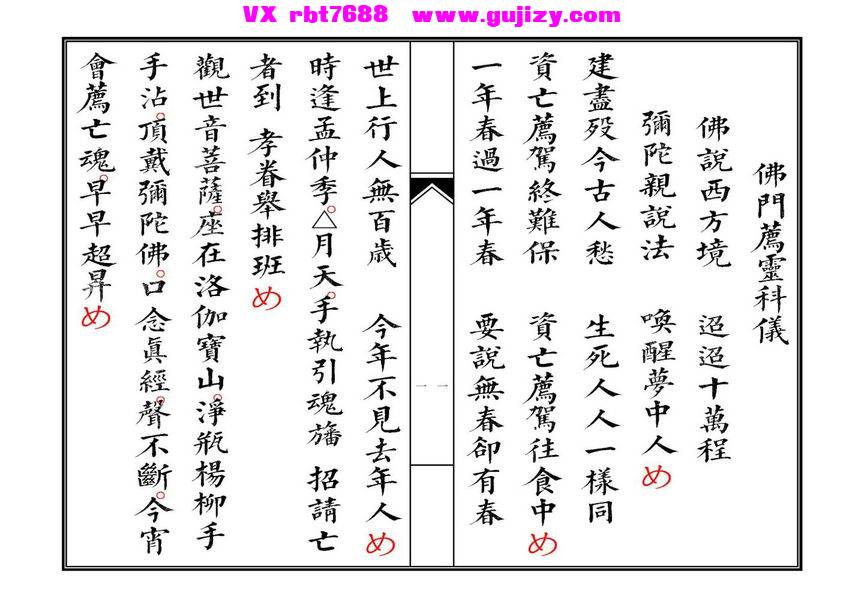 VX rbt7688 www.gujizy.com
佛門薦靈科儀
佛說西方境 迢迢十萬程
彌陀親說法 喚醒夢中人め
建盡殁今古人愁 生死人人一樣同
資亡薦駕終難保 資亡薦駕往食中め
一年春過一年春 要說無春卻有春
一一
世上行人無百歲 今年不見去年人め
時逢孟仲季。△月天。手執引魂旛 招請亡
者到 孝眷舉排班め
觀世音菩薩。座在洛伽寶山。淨瓶楊柳手
手沾。頂戴彌陀佛。口念眞經。聲不斷。今宵
會薦亡魂。早早超昇め